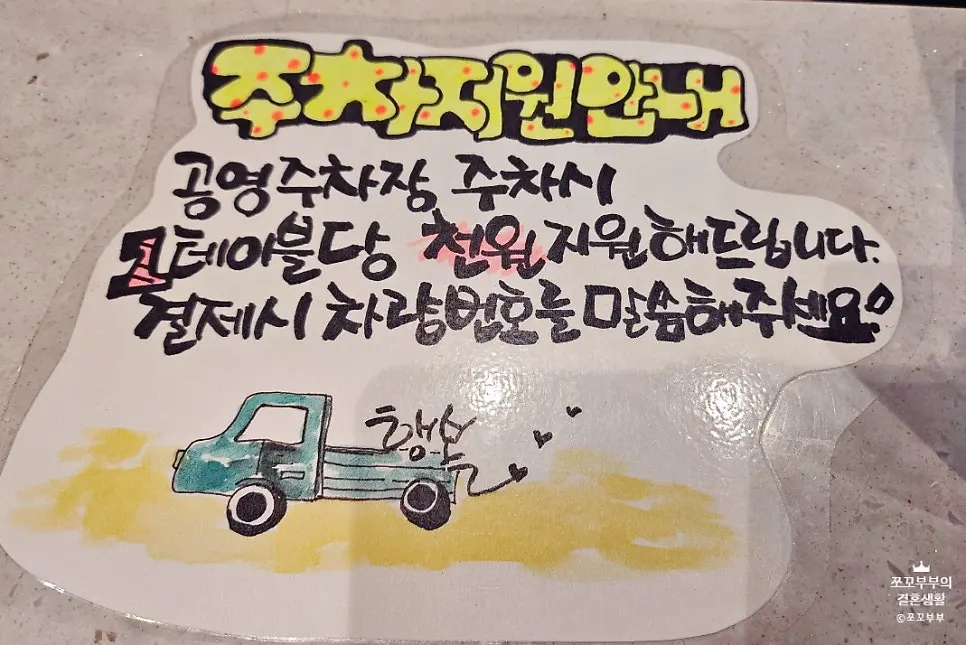 주차지원안내
공영주차장 주차시
1테이블당 천원 지원해드립니다.
결제시 차량번호를 말씀해주세요!
행복
쪼꼬부부의
결혼생활
©쪼꼬부부